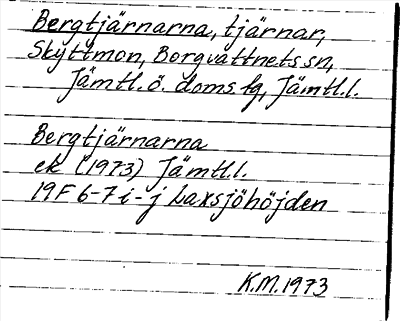 Bergtjärnarna, tjärnar,
Skyttmon, Borgvattnets sn,
Jämtl. ö. doms fg, Jämtl.l.
Bergtjärnarna
ek (1973) Jämtl.l.
19F 6-7 i-j Laxsjöhöjden
K.M. 1973